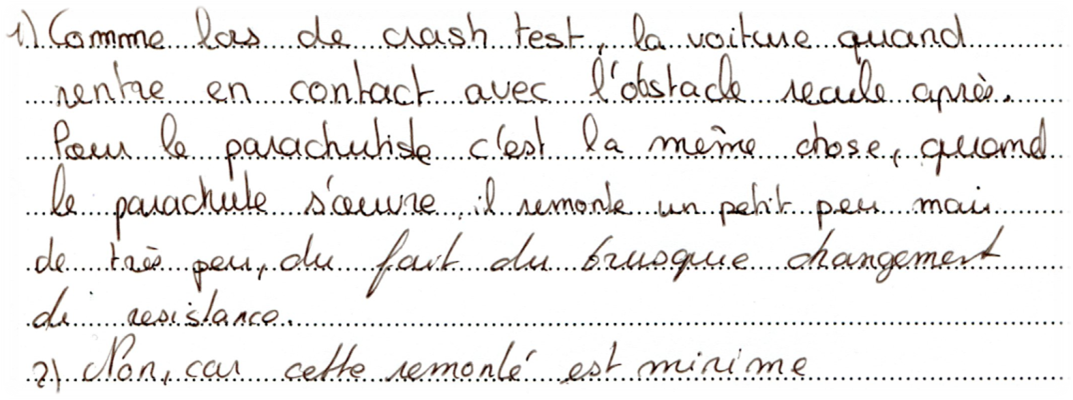 1) Comme lors de crash test, la voiture quand
rentre en contact avec l'obstacle recule après.
Pour le parachutiste c'est la même chose, quand
le parachute s'œuvre, il remonte un petit peu mais
de très peu, du fait du brusque changement
di resistance.
2) Non, car cette remonté est minime